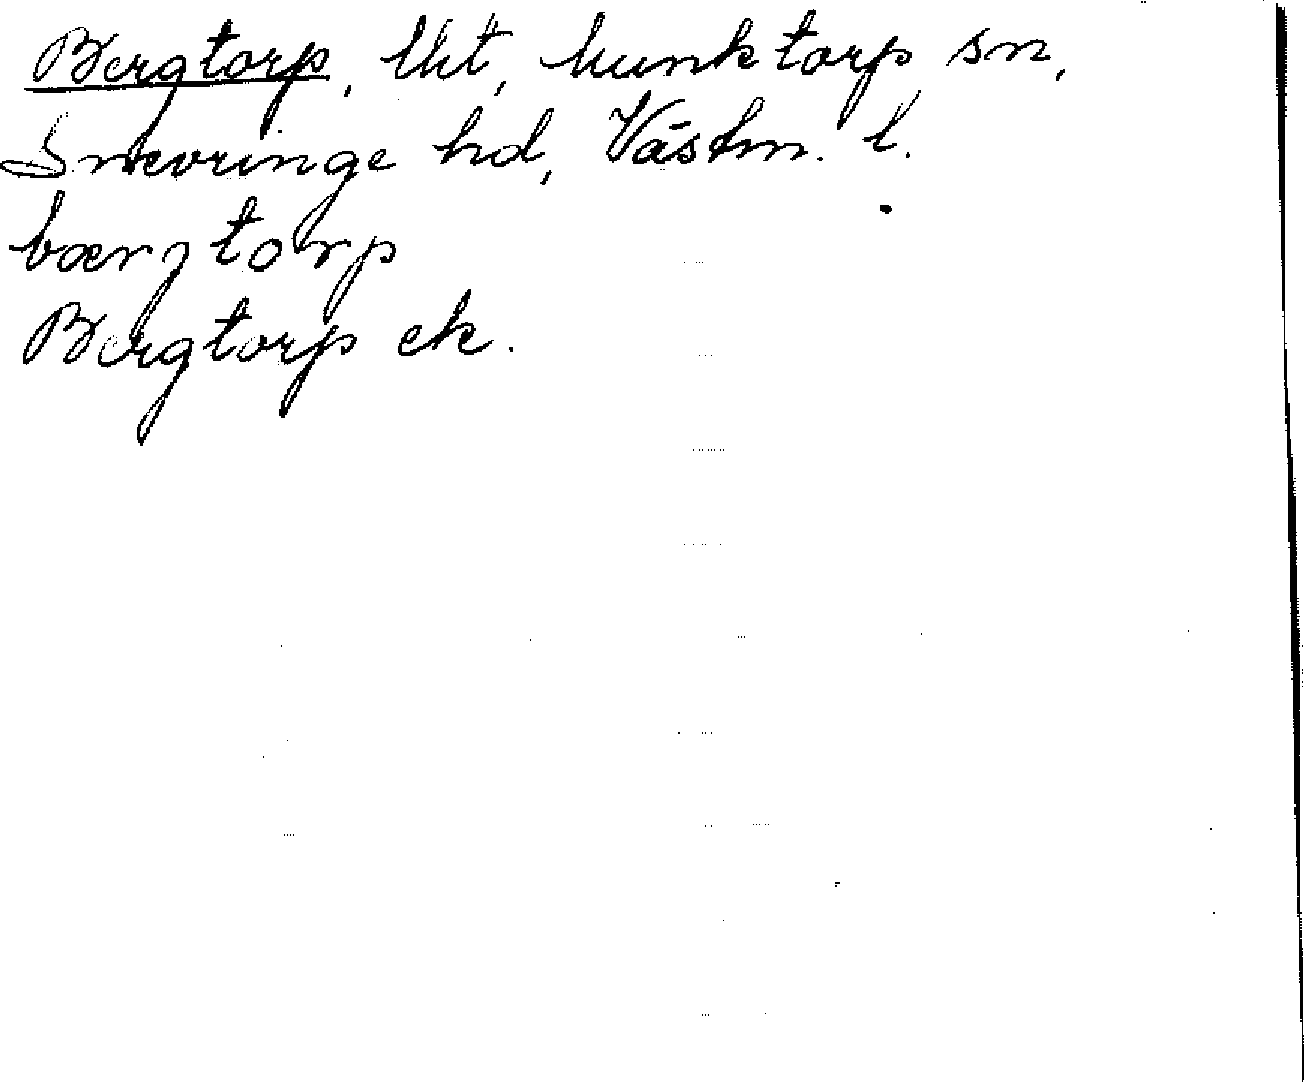 Bergtorp, lht, Munktorp sn,
Snevringe hd, Västm. l.
bærjtorp
Bergtorp ek.